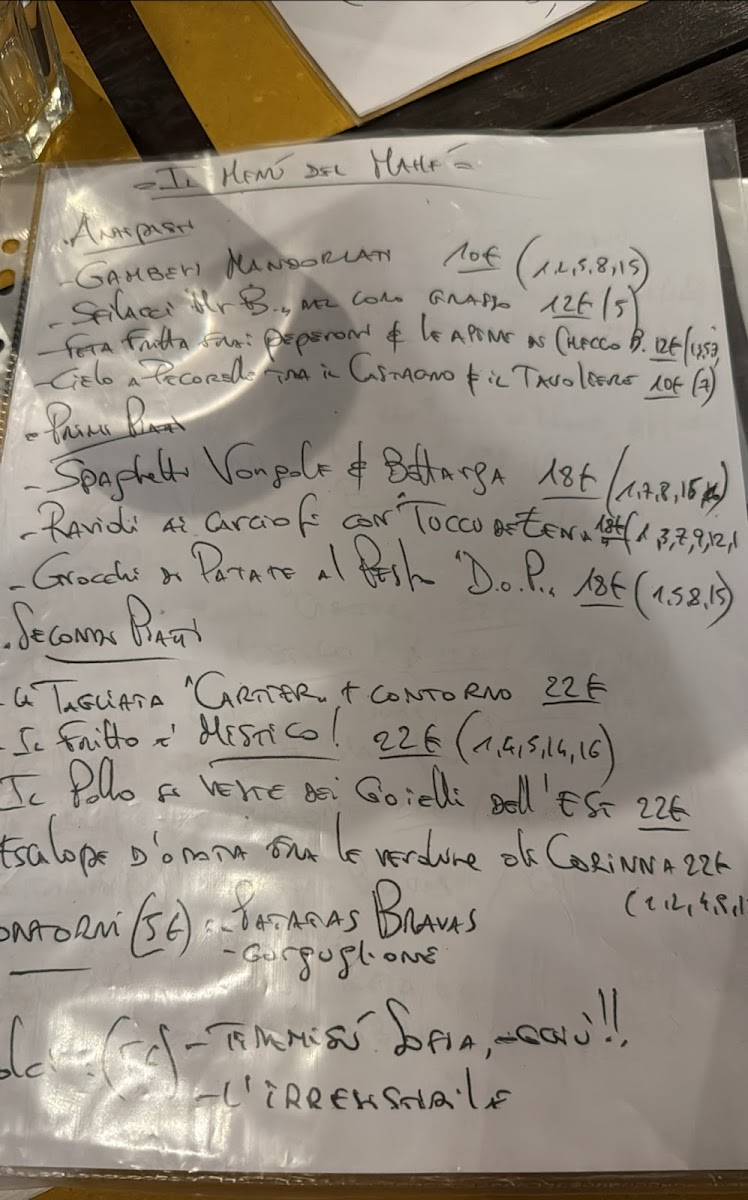 = Il Menú del Mahé =
. Antipasti
- Gamberi Mandorlati 10€ (1,2,5,8,15)
- Sfilacci Mr B., nel coro grasso 12€ (5)
- Feta fritta fra i peperoni & le apine di Checco B. 12€
- Cielo a Pecorelle tra il Castagno & il Tavoliere 10€ (7)
. Primi Piatti
- Spaghetti Vongole & Bottarga 18€ (1,7,8,15
- Ravioli ai Carciofi con "Tocco de Zena" 18€ (1,3,7,9,12,1
- Gnocchi di Patate al Pesto "D.o.P." 18€ (1,5,8,15)
. Secondi Piatti
- La Tagliata "Cartier" + contorno 22€
- Il fritto è Mistico! 22€ (1,4,5,14,16)
Il Pollo si veste dei Gioielli dell'Est 22€
Escalope d'orata fra le verdure di Corinna 22€
(1,2,4,8,1
ontorni (5€) : - Patatas Bravas
- Gorguglione
olci : (5€) - Tiramisú Sofia,
- L'irresistibile